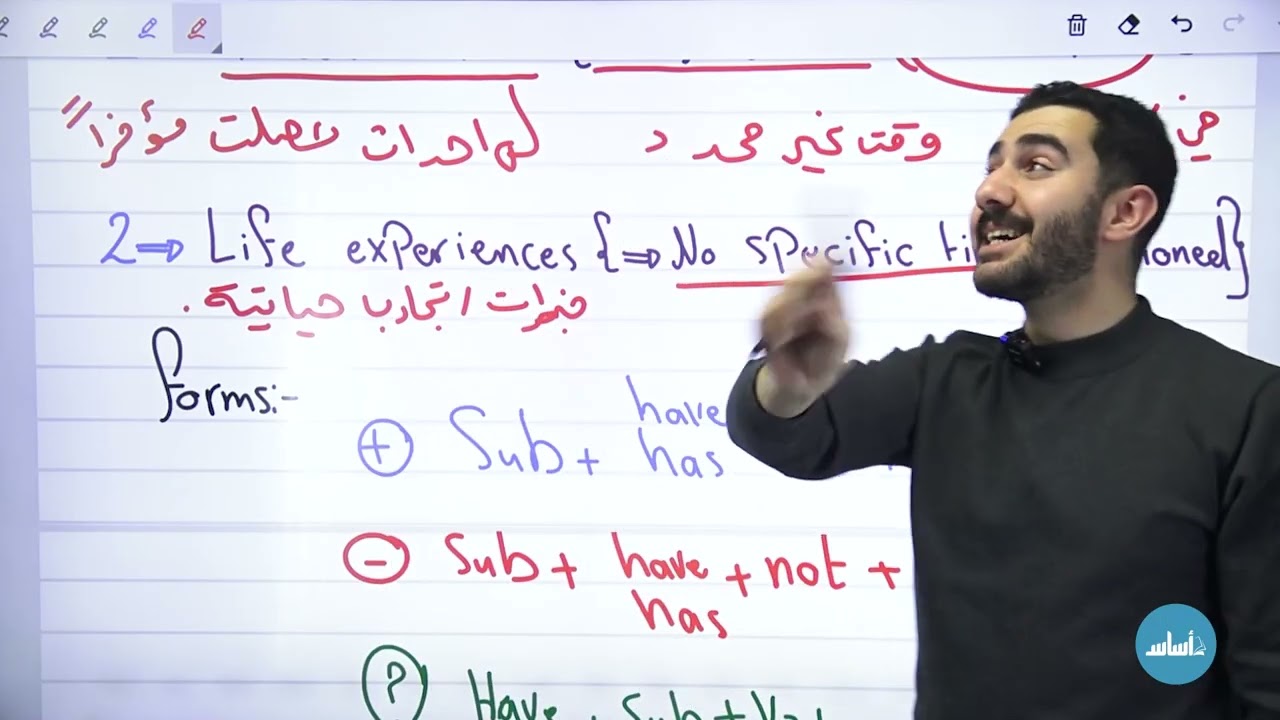 لأحداث حصلت مؤخراً وقت غير محدد
2 ⇒ Life experiences {⇒ No specific ti ioned}
خبرات / تجارب حياتية .
forms:-
+ Sub + have
has
- Sub + have + not +
has
? Have Sub + V
أساس